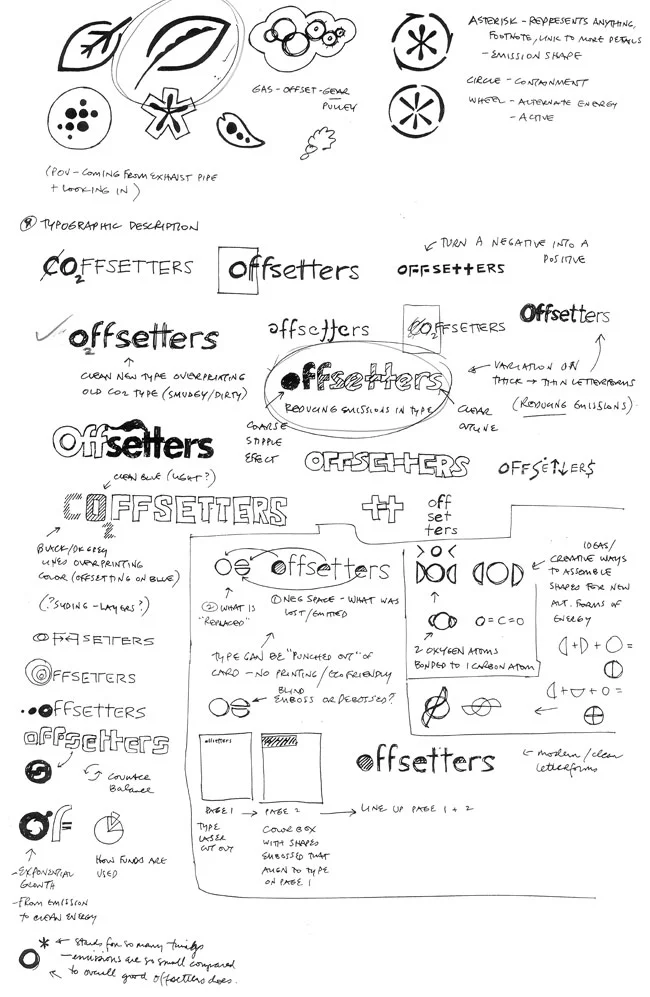 ASTERISK - REPRESENTS ANYTHING,
FOOTNOTE, LINK TO MORE DETAILS
- EMISSION SHAPE
CIRCLE - CONTAINMENT
WHEEL - ALTERNATE ENERGY
- ACTIVE
GAS - OFFSET - GEAR
PULLEY
(POV - COMING FROM EXHAUST PIPE
+ LOOKING IN)
TYPOGRAPHIC DESCRIPTION
CO2FFSETTERS
offsetters
TURN A NEGATIVE INTO A
POSITIVE
OFFSETTERS
o2ffsetters
offsetters
CO2FFSETTERS
Offsetters
CLEAN NEW TYPE OVERPRINTING
OLD CO2 TYPE (SMUDGY/DIRTY)
offsetters
REDUCING EMISSIONS IN TYPE
VARIATION ON
THICK → THIN LETTERFORMS
(REDUCING EMISSIONS)
COARSE
STIPPLE
EFFECT
CLEAR
OUTLINE
Offsetters
OFFSETTERS
OFFSETTERS
CLEAN BLUE (LIGHT?)
CO2FFSETTERS
tt
off
set
ters
BLACK/DK GREY
LINES OVERPRINTING
COLOR (OFFSETTING ON BLUE)
(?SLIDING - LAYERS?)
offsetters
② WHAT IS
"REPLACED"
① NEG SPACE - WHAT WAS
LOST/EMITTED
TYPE CAN BE "PUNCHED OUT" OF
CARD - NO PRINTING / ECO FRIENDLY
BLIND
EMBOSS OR DEBOSSED?
O=C=O
2 OXYGEN ATOMS
BONDED TO 1 CARBON ATOM
IDEAS/
CREATIVE WAYS
TO ASSEMBLE
SHAPES FOR NEW
ALT. FORMS OF
ENERGY
OFFSETTERS
OFFSETTERS
OFFSETTERS
offsetters
COUNTER
BALANCE
offsetters
offsetters
modern/clean
letterforms
PAGE 1 → PAGE 2 → LINE UP PAGE 1 + 2
TYPE
LASER
CUT OUT
COLOR BOX
WITH SHAPES
EMBOSSED THAT
ALIGN TO TYPE
ON PAGE 1
OF
- EXPONENTIAL
GROWTH
- FROM EMISSION
TO CLEAN ENERGY
HOW FUNDS ARE
USED
* ← stands for so many things
- emissions are so small compared
to overall good offsetters does.